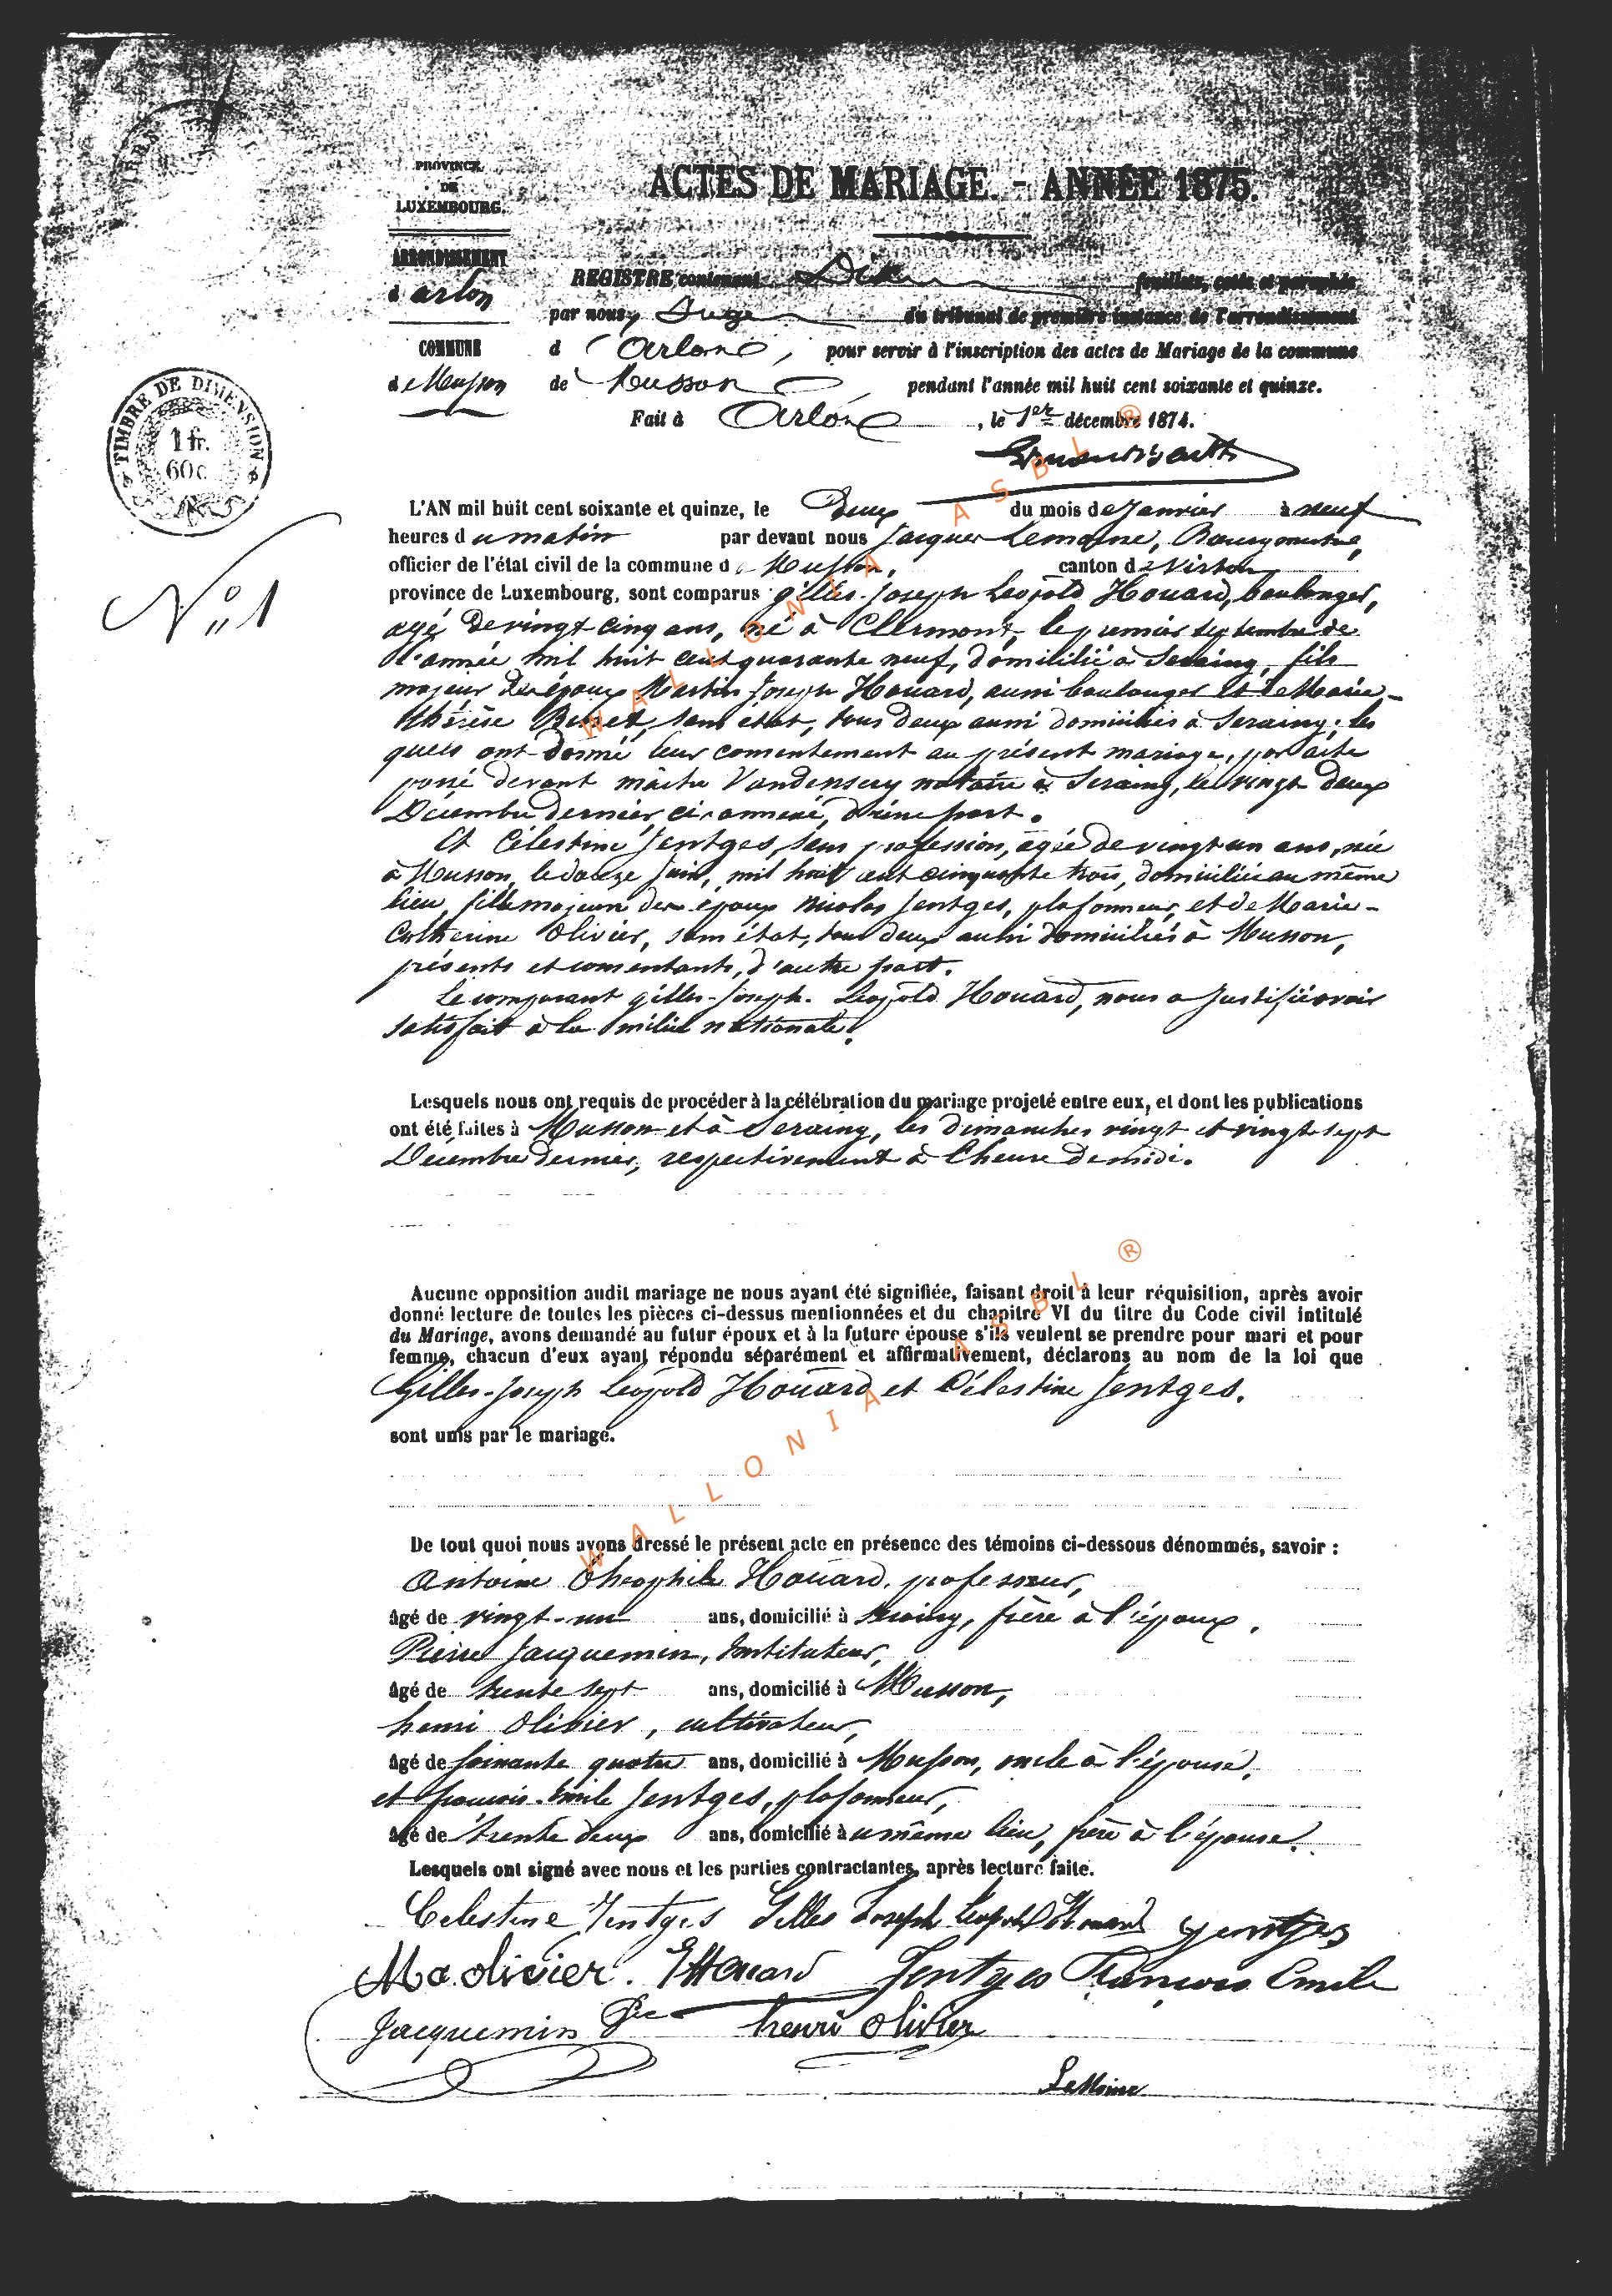 PROVINCE
DE
LUXEMBOURG.
ACTES DE MARIAGE. - ANNÉE 1875.
ARRONDISSEMENT
d'arlon
COMMUNE
de Musson
REGISTRE contenant Dix feuillets, cotés et paraphés
par nous, Juge du tribunal de première instance de l'arrondissement
d'Arlon, pour servir à l'inscription des actes de Mariage de la commune
de Musson pendant l'année mil huit cent soixante et quinze.
Fait à Arlon, le 1er décembre 1874.
TIMBRE DE DIMENSION
1 fr.
60 c
N° 1
L'AN mil huit cent soixante et quinze, le Deux du mois de Janvier à neuf
heures du matin par devant nous Jacques Lemoine, Bourgmestre,
officier de l'état civil de la commune de Musson, canton de Virton
province de Luxembourg, sont comparus gilles-Joseph Léopold Houard, boulanger,
agé de vingt cinq ans, né à Clermont, le premier septembre de
l'année mil huit cent quarante neuf, domicilié à Seraing, fils
majeur des époux Martin Joseph Houard, aussi boulanger et de Marie-
thérèse, sans état, tous deux aussi domiciliés à Seraing; les
quels ont donné leur consentement au présent mariage, par acte
passé devant maître notaire à Seraing, le vingt deux
Décembre dernier, ci-annexé, d'une part.
Et Célestine Jentges, sans profession, agée de vingt un ans, née
à Musson, le douze Juin, mil huit cent cinquante trois, domiciliée au même
lieu, fille majeure des époux Nicolas Jentges, plafonneur, et de Marie-
Catherine Olivier, sans état, tous deux aussi domiciliés à Musson,
présents et consentants, d'autre part.
Le comparant gilles-Joseph-Léopold Houard, nous a justifié avoir
satisfait à la milice nationale.
Lesquels nous ont requis de procéder à la célébration du mariage projeté entre eux, et dont les publications
ont été faites à Musson et à Seraing, les dimanches vingt et vingt-sept
Décembre dernier, respectivement à l'heure de midi.
Aucune opposition audit mariage ne nous ayant été signifiée, faisant droit à leur réquisition, après avoir
donné lecture de toutes les pièces ci-dessus mentionnées et du chapitre VI du titre du Code civil intitulé
du Mariage, avons demandé au futur époux et à la future épouse s'ils veulent se prendre pour mari et pour
femme, chacun d'eux ayant répondu séparément et affirmativement, déclarons au nom de la loi que
Gilles-Joseph Léopold Houard et Célestine Jentges.
sont unis par le mariage.
De tout quoi nous avons dressé le présent acte en présence des témoins ci-dessous dénommés, savoir :
Antoine Théophile Houard, professeur,
âgé de vingt-un ans, domicilié à Seraing, frère à l'époux,
Pierre Jacquemin, Instituteur,
âgé de trente sept ans, domicilié à Musson,
henri Olivier, cultivateur,
âgé de soixante quatre ans, domicilié à Musson, oncle à l'épouse,
et françois-Emile Jentges, plafonneur,
âgé de trente deux ans, domicilié au même lieu, frère à l'épouse.
Lesquels ont signé avec nous et les parties contractantes, après lecture faite.
Celestine Jentges Gilles Joseph Léopold Houard Jentges
M c olivier. Houard Jentges François Emile
Jacquemin Pre henri olivier
LeMoine
WALLONIA ASBL ®
WALLONIA ASBL ®